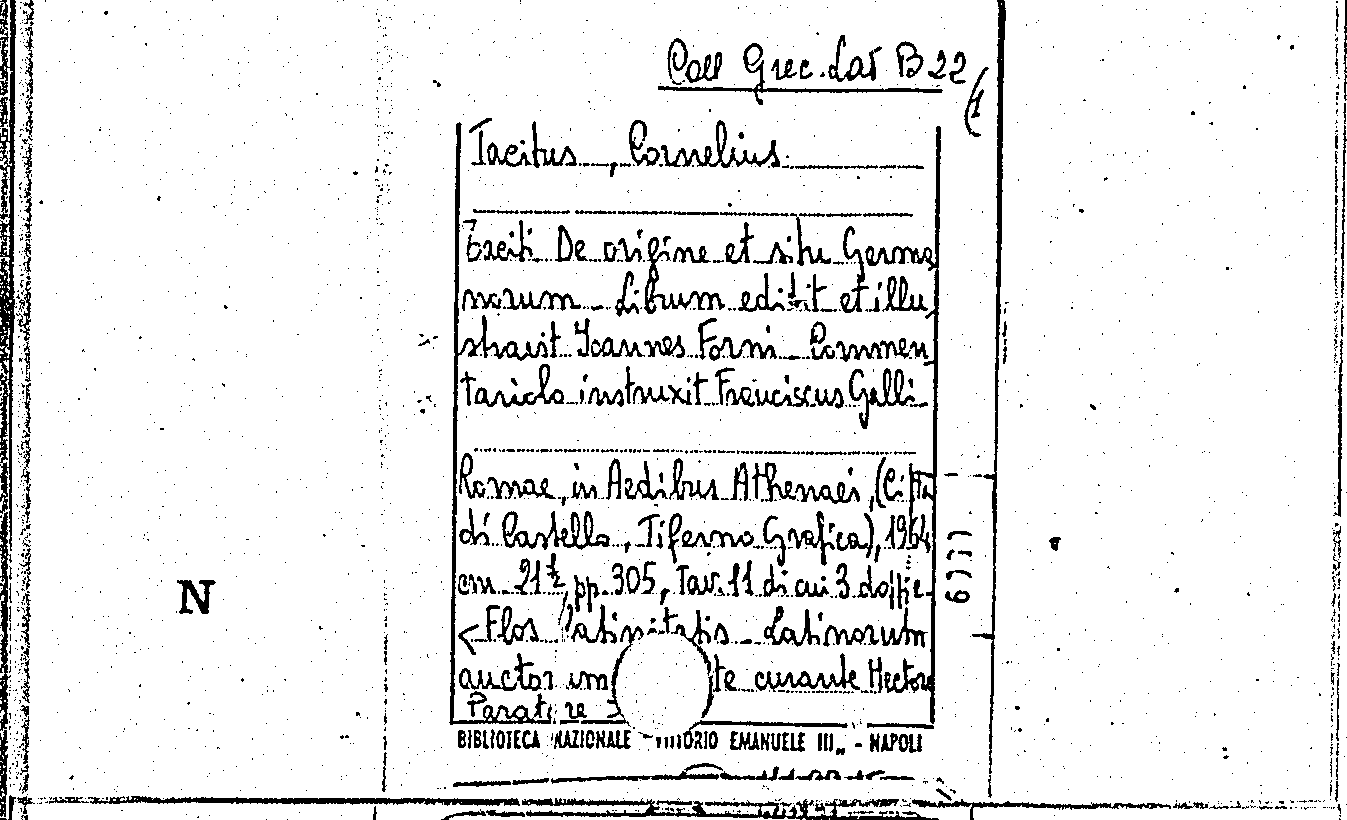 Coll Grec. Lat B 22
(1
Tacitus, Cornelius
Taciti De origine et situ Germa
norum - Librum edidit et illu,
stravit Joannes Forni - Commen
tariolo instruxit Franciscus Galli -
Romae, in Aedibus Athenaei, (Città
di Castello, Tiferno Grafica), 1964
cm. 21 1/2, pp. 305, Tav. 11 di cui 3 doppie -
< Flos Latinitatis - Latinorum
auctorum te curante Hectore
Paratore
BIBLIOTECA NAZIONALE "VITTORIO EMANUELE III" - NAPOLI
N